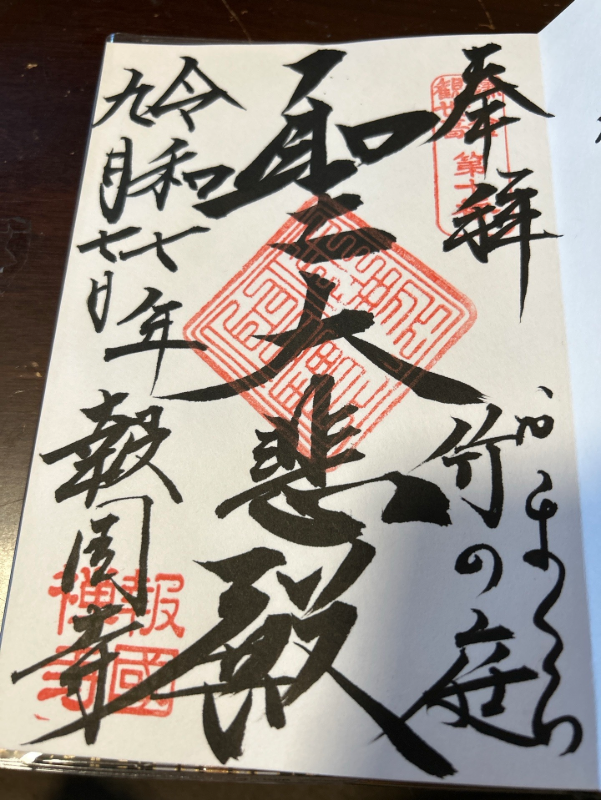 奉拝
かまくら
竹の庭
聖大悲殿
令和七年
九月十七日
報国寺
第十
観世音
報國
禅寺